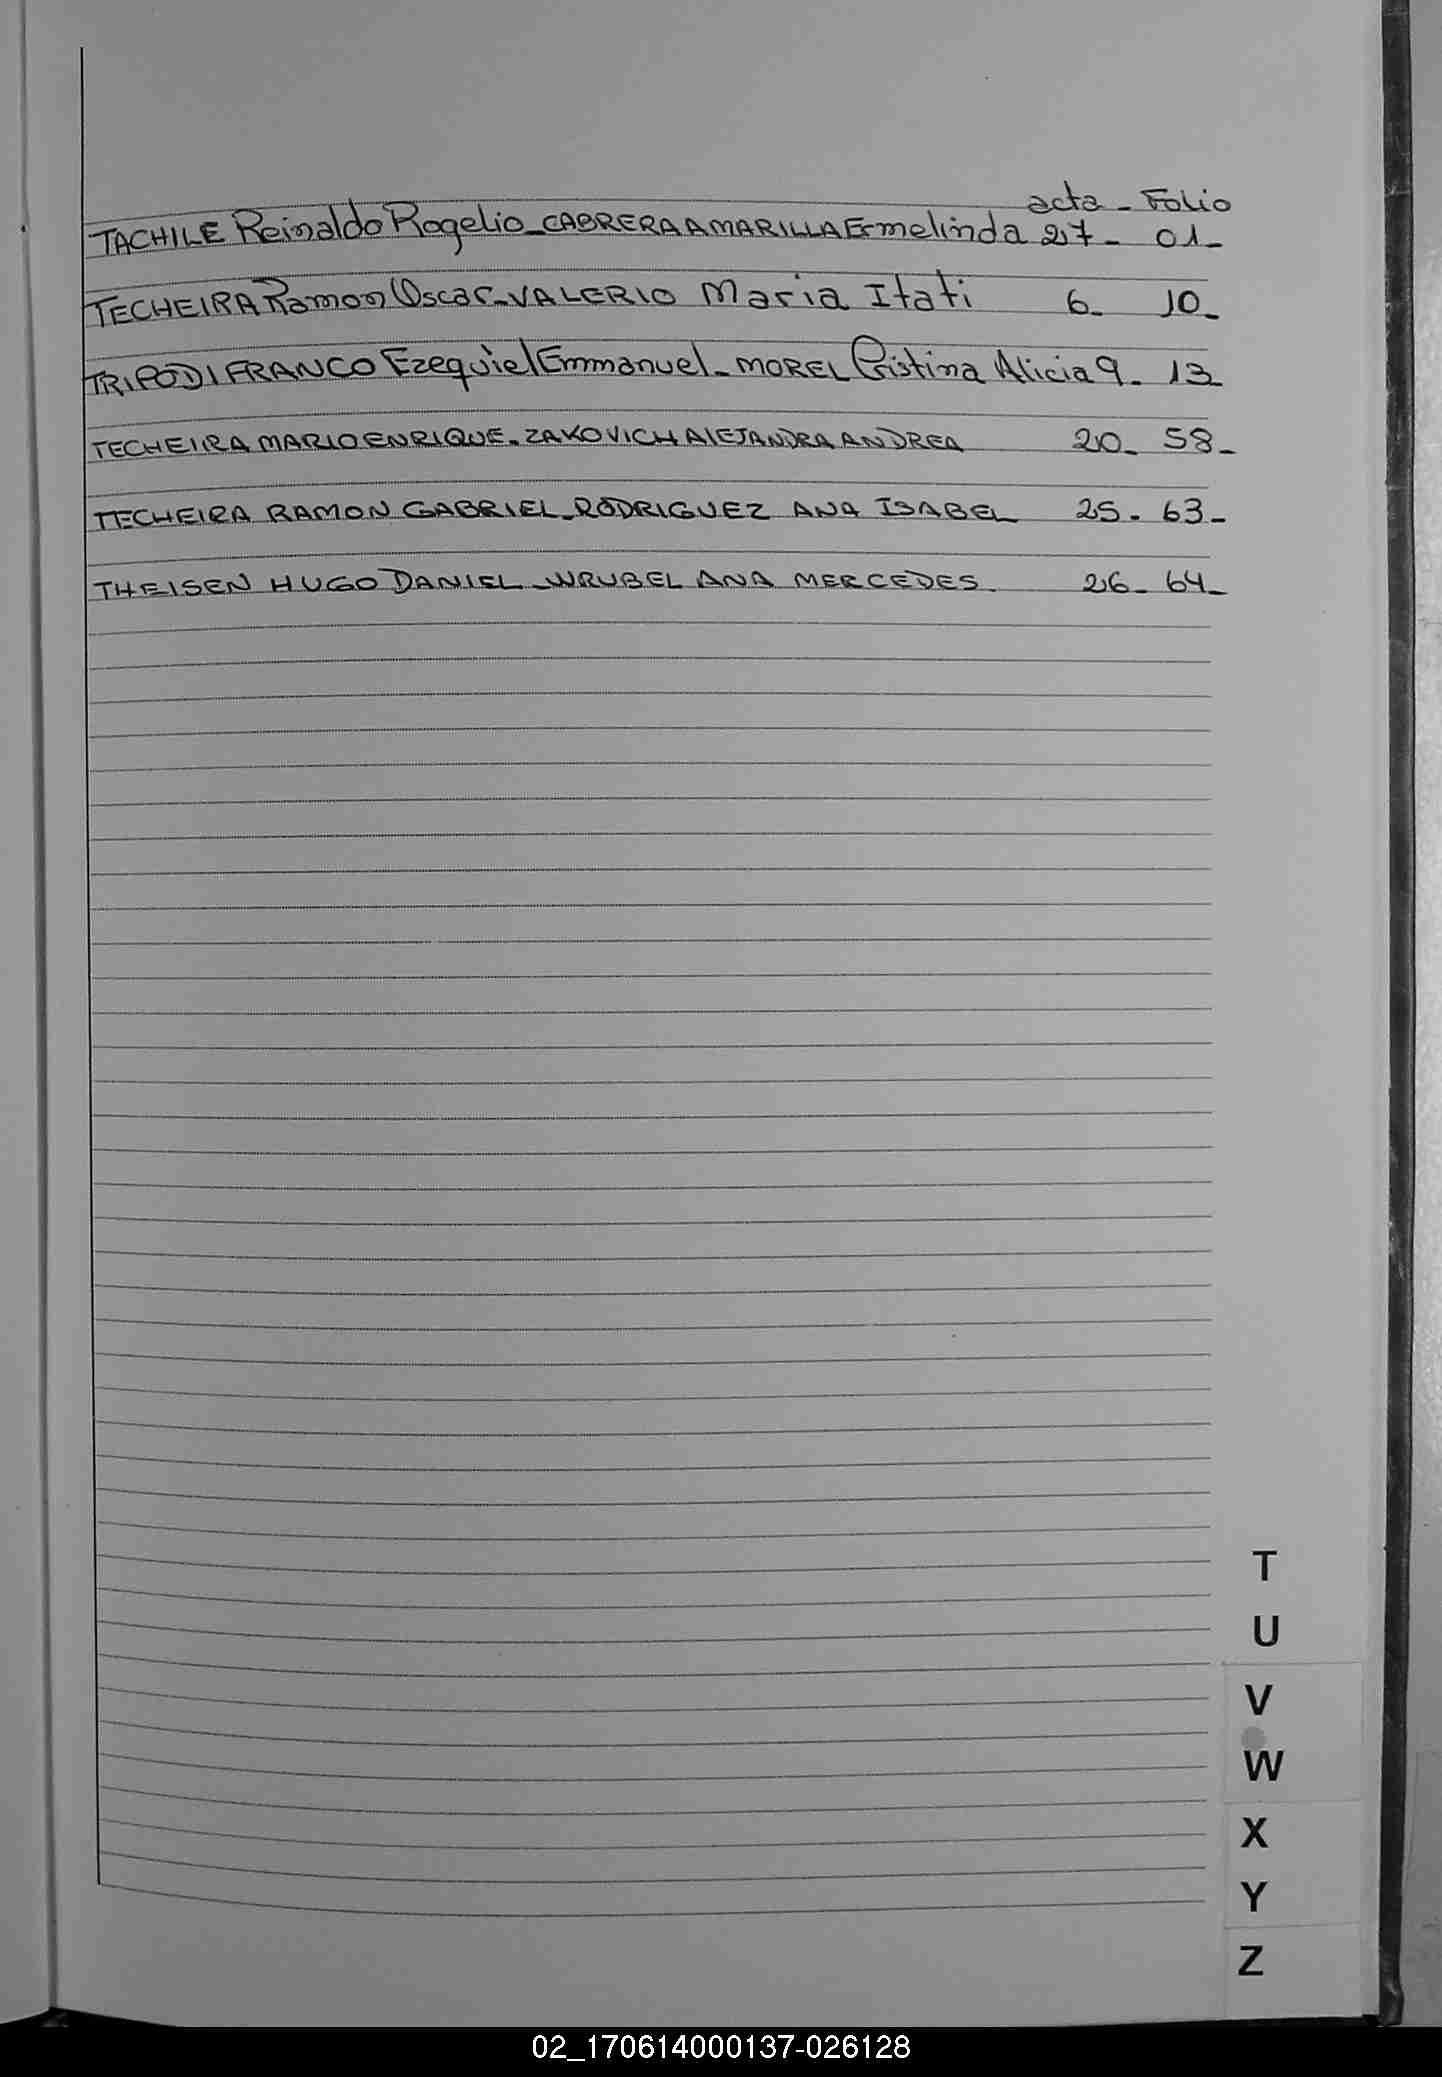 acta - Folio
TACHILE Reinaldo Rogelio - CABRERA AMARILLA Ermelinda 27 - 01 -
TECHEIRA Ramon Oscar - VALERIO Maria Itati 6 - 10 -
TRIPODI FRANCO Ezequiel Emmanuel - MOREL Cristina Alicia 9 - 13
TECHEIRA MARIO ENRIQUE - ZAKOVICH AlEJANDRA ANDREA 20 - 58 -
TECHEIRA RAMON GABRIEL - RODRIGUEZ ANA ISABEL 25 - 63 -
THEISEN HUGO DANIEL - WRUBEL ANA MERCEDES. 26 - 64 -
T
U
V
W
X
Y
Z
02_170614000137-026128